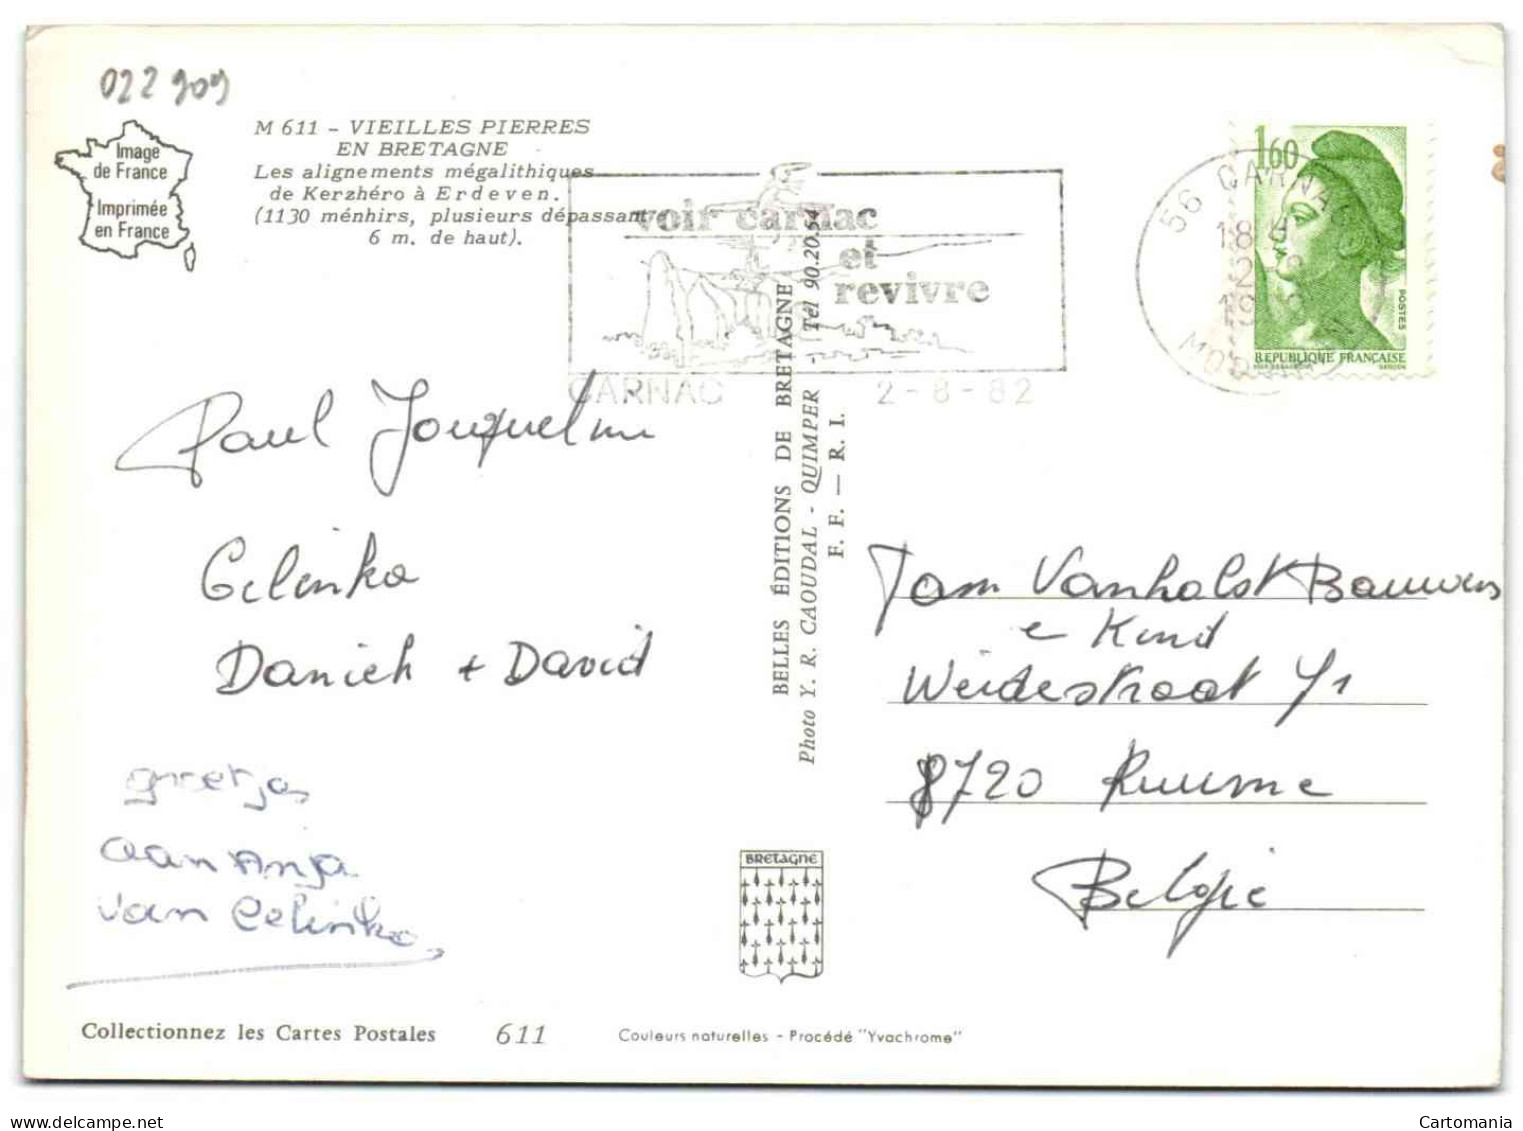 022909
Image
de France
Imprimée
en France
M 611 – VIEILLES PIERRES
EN BRETAGNE
Les alignements mégalithiques
de Kerzhéro à Erdeven.
(1130 ménhirs, plusieurs dépassant
6 m. de haut).
voir carnac
et
revivre
CARNAC 2-8-82
56 CARNAC
18 H
2-8
1982
MORBIHAN
1,60
POSTES
REPUBLIQUE FRANÇAISE
GANDON
BELLES ÉDITIONS DE BRETAGNE
Photo Y. R. CAOUDAL - QUIMPER - Tél 90.20.54
F. F. — R. I.
Paul
Celinka
Danieh + David
groetjes
aan Anja
van Celinka
Vanholst Bauwens
e Kind
Weidestraat 41
8720 Kuurne
België
BRETAGNE
Collectionnez les Cartes Postales 611
Couleurs naturelles - Procédé "Yvachrome"
Cartomania